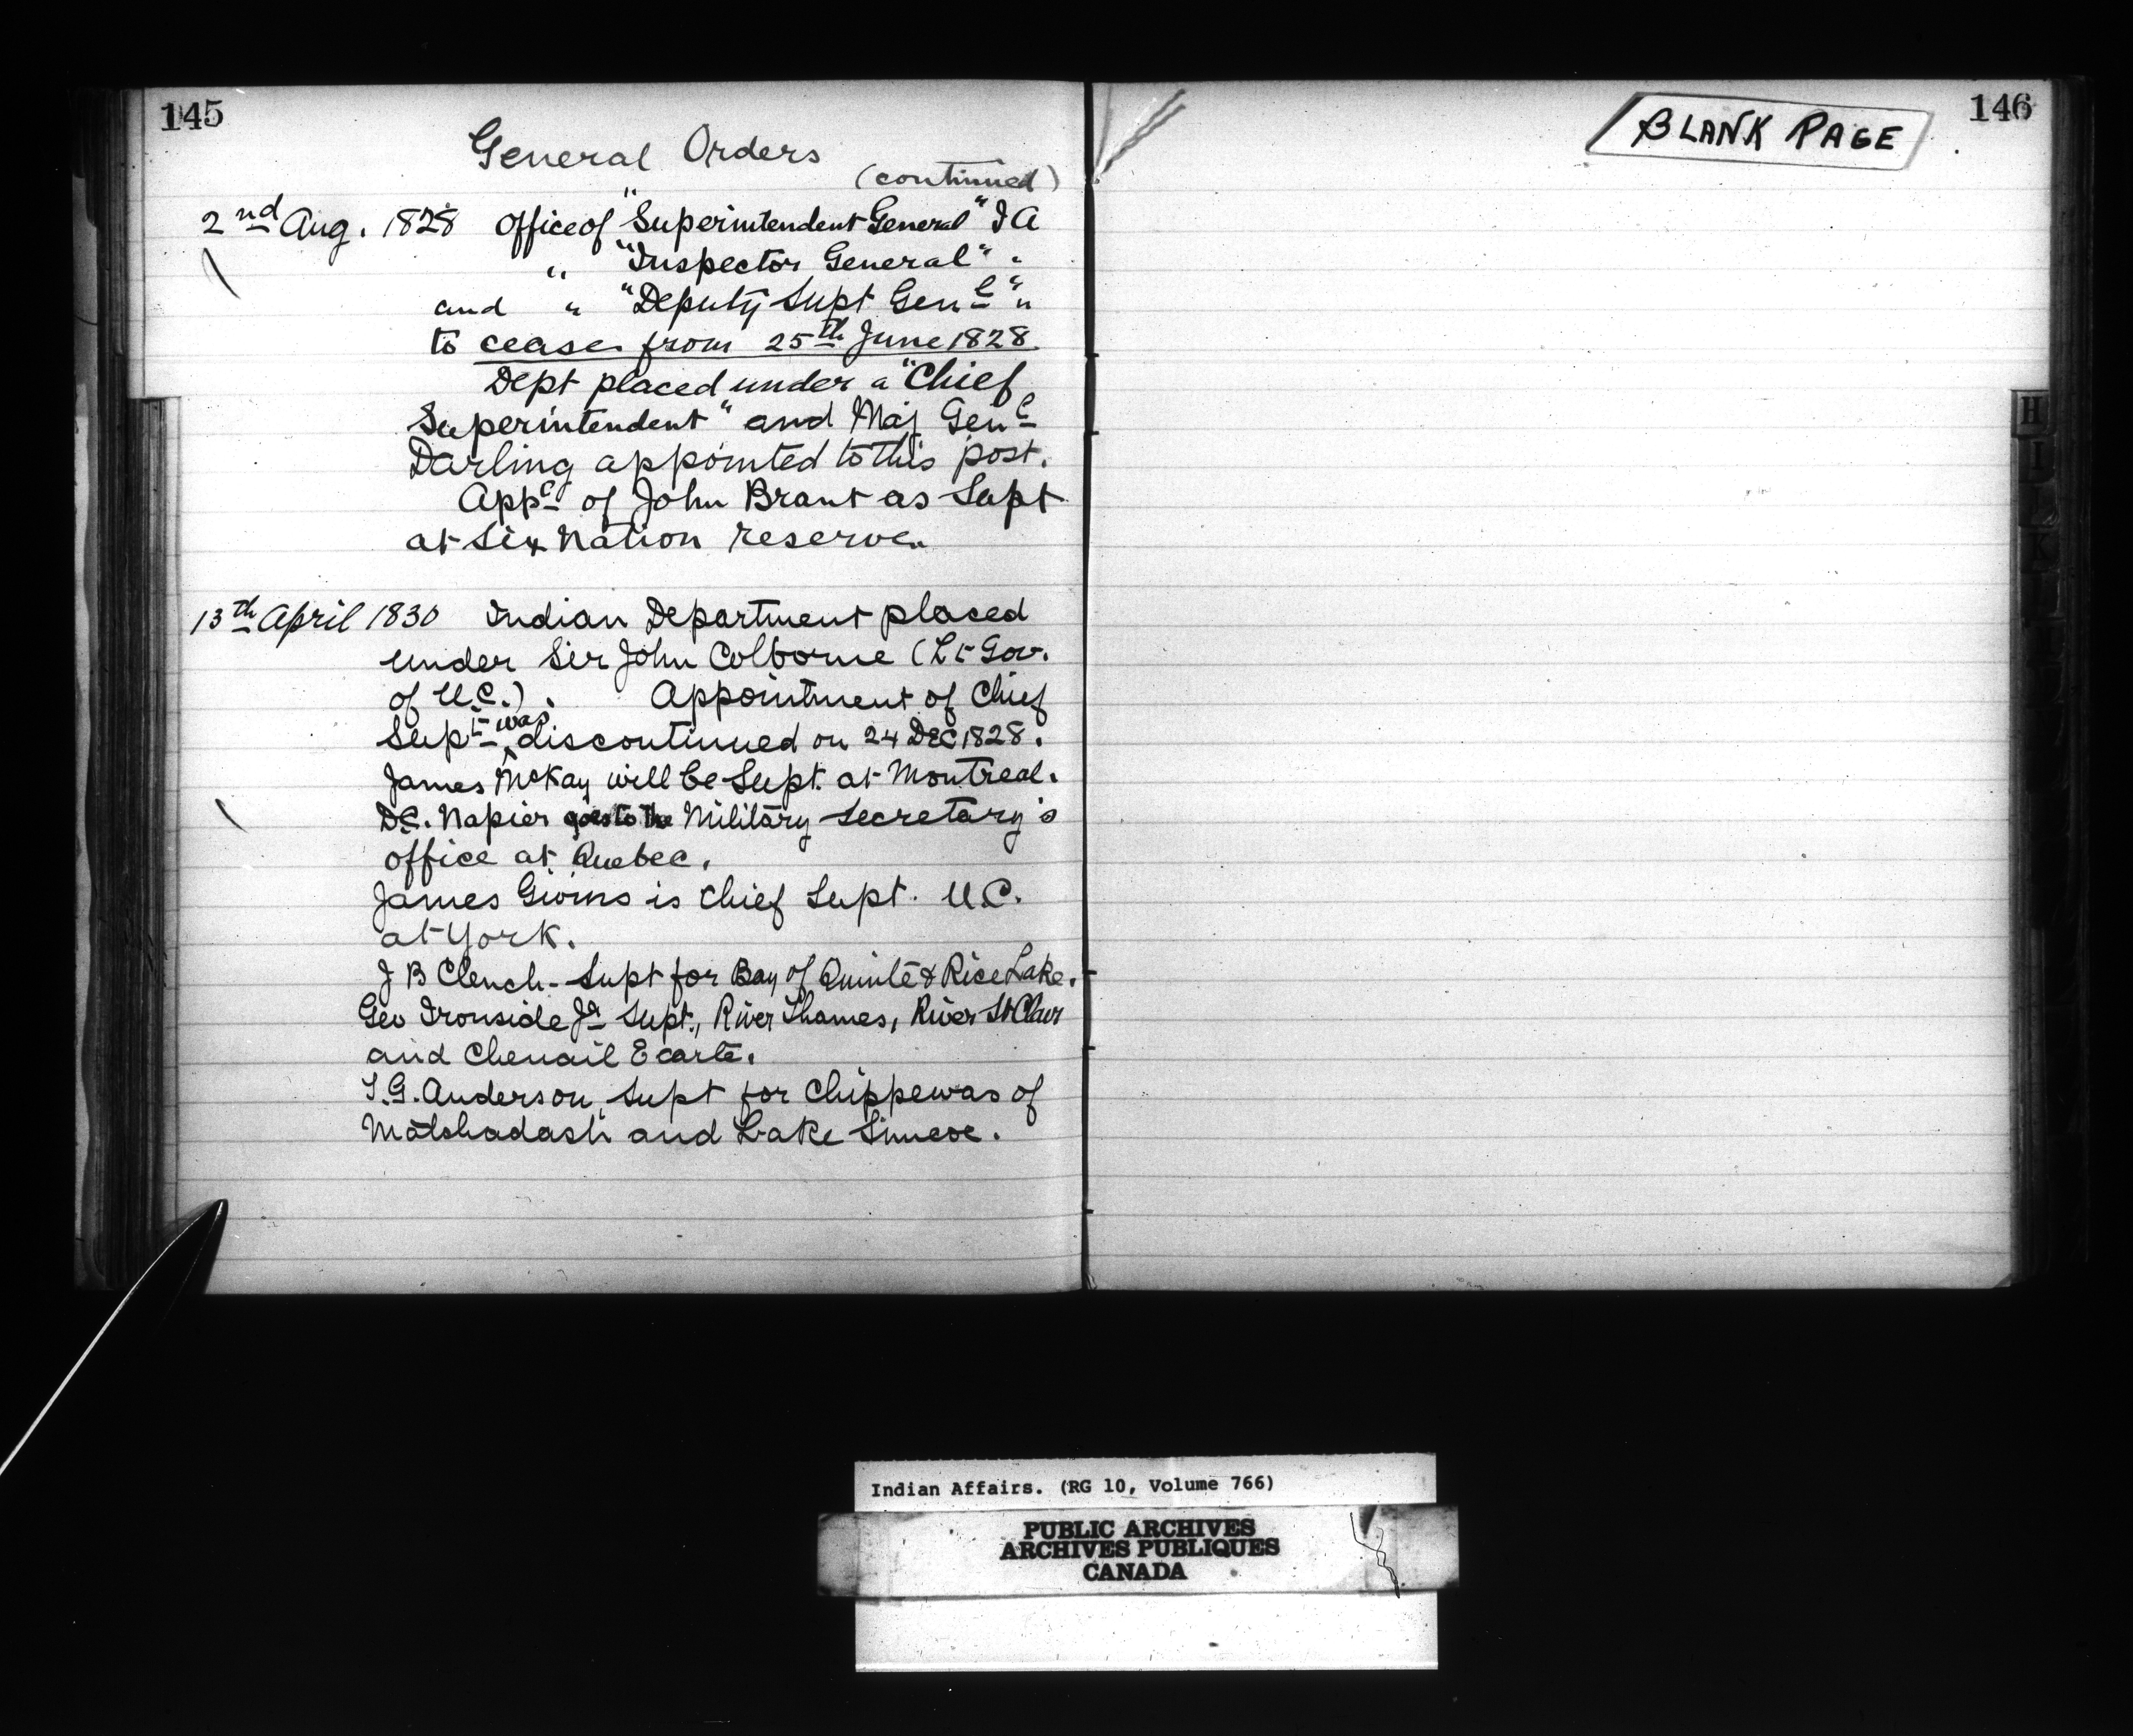 145
General Orders
(continued)
2nd Aug. 1828 Office of "Superintendent General" I A
" "Inspector General" "
and " "Deputy Supt Genl" "
to cease from 25th June 1828
Dept placed under a "Chief
Superintendent" and Maj Genl
Darling appointed to this post.
of John Brant as Supt
at Six Nation reserve.
13th April 1830 Indian Department placed
under Sir John Colborne (Lt Gov.
of U.C.). Appointment of Chief
Supt was discontinued on 24 Dec 1828.
James McKay will be Supt. at Montreal.
D.C. Napier goes to the Military Secretary's
office at Quebec.
James Givins is Chief Supt. U.C.
at York.
J B Clench - Supt for Bay of Quinte & Rice Lake.
Geo Ironside Jr Supt., River Thames, River St Clair
and Chenail Ecarte.
T.G. Anderson, Supt for Chippewas of
Matchadash and Lake Simcoe.
146
BLANK PAGE
H
I
J
K
L
Indian Affairs. (RG 10, Volume 766)
PUBLIC ARCHIVES
ARCHIVES PUBLIQUES
CANADA